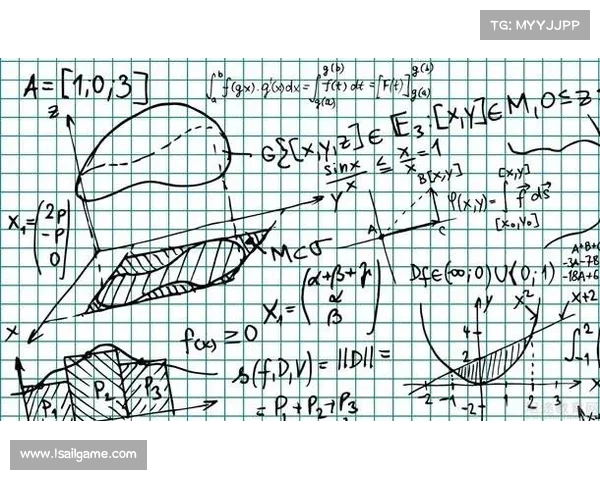 TG: MYYJJPP
A = [1;0;3]
∫_a^b f(gx)·g'(x)dx = ∫_{g(a)}^{g(b)} f(t) dt = [F(t)]_{g(a)}^{g(b)}
z
G{[x,y,z] ∈ E_3: [x,y] ∈ M, 0 ≤ z
sinx/x ≤ x/x = 1
y
B[x,y]
A
C
φ(x,y) = ∫_{[x_0,y_0]}^{[x,y]} f ds
X_1 = (2p
-p
0)
M⊂σ
X_1 = (α+β+γ
α
β)
Df∈(∞;0)∪(0;1)
A+B+
-3A-7B
-18A+6
x
y
x²
x+2
f(x) ≥ 0
4
2
∫_{-1}^{2}
s(f,D,V) = ||D|| =
= P_1 + P_2 + P_3
P_1
P_2
P_3
-2 -1 0 2 3 x
-2
www.lsailgame.com